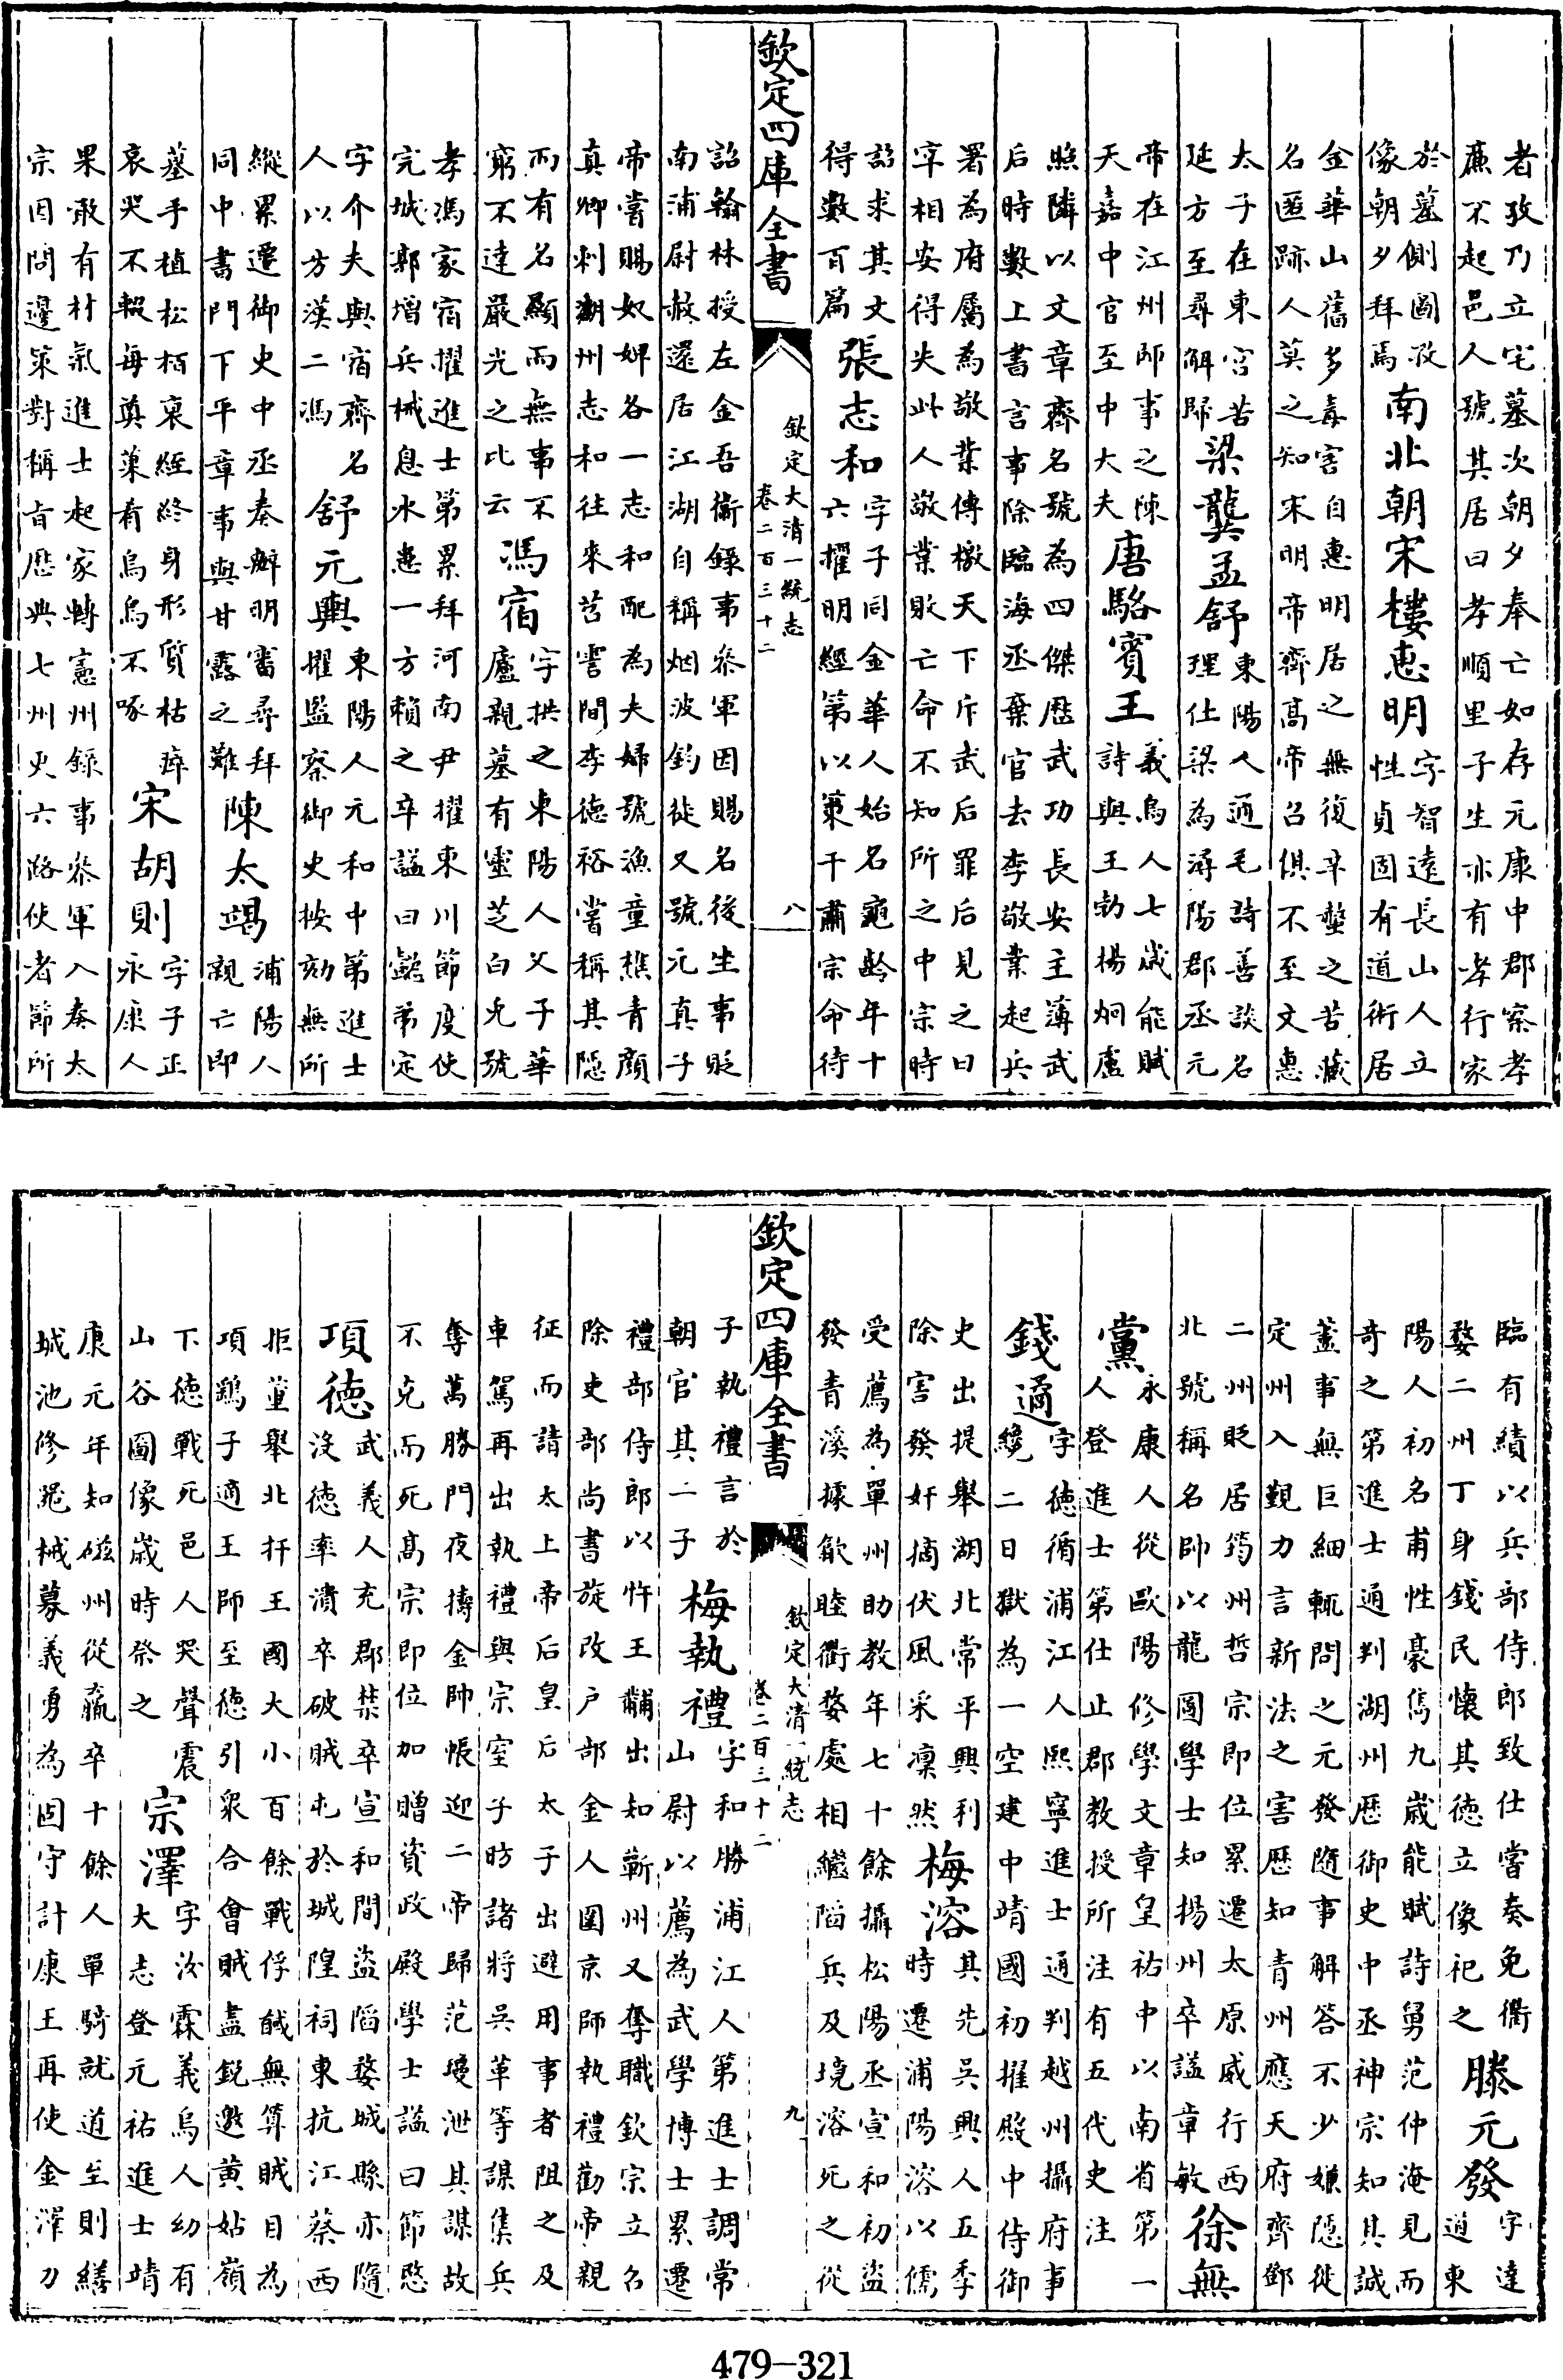 者孜乃立宅墓次朝夕奉亡如存元康中郡察孝
廉不起邑人號其居曰孝順里子生亦有孝行家
於墓側圖孜
像朝夕拜焉
南北朝宋樓惠明
字智遠長山人立
性貞固有道術居
金華山舊多毒害自惠明居之無復辛螫之苦藏
名匿跡人莫之知宋明帝齊高帝召俱不至文惠
太子在東宫苦
延方至尋解歸
梁龔孟舒
東陽人通毛詩善談名
理仕梁為潯陽郡丞元
帝在江州師事之陳
天嘉中官至中大夫
唐駱賓王
義烏人七嵗能賦
詩與王勃楊炯盧
照隣以文章齊名號為四傑歴武功長安主薄武
后時數上書言事除臨海丞棄官去李敬業起兵
署為府屬為敬業傳檄天下斥武后罪后見之曰
宰相安得失此人敬業敗亡命不知所之中宗時
詔求其文
得數百篇
張志和
字子同金華人始名龜齡年十
六擢明經第以策干肅宗命待
欽定四庫全書
欽定大清一統志
卷二百三十二
八
詔翰林授左金吾衞錄事叅軍因賜名後坐事貶
南浦尉赦還居江湖自稱烟波釣徒又號元真子
帝嘗賜奴婢各一志和配為夫婦號漁童樵青顔
真卿刺湖州志和往來苕霅間李德裕嘗稱其隠
而有名顯而無事不
窮不達嚴光之比云
馮宿
字拱之東陽人父子華
廬親墓有靈芝白兔號
孝馮家宿擢進士第累拜河南尹擢東川節度使
完城郭增兵械息水患一方賴之卒諡曰懿弟定
字介夫與宿齊名
人以方漢二馮
舒元輿
東陽人元和中第進士
擢監察御史按劾無所
縱累遷御史中丞奏辦明審尋拜
同中書門下平章事與甘露之難
陳太竭
浦陽人
親亡即
墓手植松栢衰絰終身形質枯瘁
哀哭不輟每奠菓肴烏鳥不啄
宋胡則
字子正
永康人
果敢有材氣進士起家轉憲州錄事叅軍入奏太
宗因問邊策對稱旨歴典七州更六路使者節所
臨有績以兵部侍郎致仕嘗奏免衢
婺二州丁身錢民懷其德立像祀之
滕元發
字達
道東
陽人初名甫性豪雋九嵗能賦詩舅范仲淹見而
奇之第進士通判湖州歴御史中丞神宗知其誠
藎事無巨細輒問之元發隨事解答不少嫌隱徙
定州入覲力言新法之害歴知青州應天府齊鄧
二州貶居筠州哲宗即位累遷太原威行西
北號稱名帥以龍圖學士知揚州卒諡章敏
徐無
黨
永康人從歐陽修學文章皇祐中以南省第一
人登進士第仕止郡教授所注有五代史注
錢遹
字德循浦江人熙寧進士通判越州攝府事
纔二日獄為一空建中靖國初擢殿中侍御
史出提舉湖北常平興利
除害發奸摘伏風采凜然
梅溶
其先吳興人五季
時遷浦陽溶以儒
受薦為單州助教年七十餘攝松陽丞宣和初盜
發青溪據歙睦衢婺處相繼陷兵及境溶死之從
欽定四庫全書
欽定大清一統志
卷二百三十二
九
子執禮言於
朝官其二子
梅執禮
字和勝浦江人第進士調常
山尉以薦為武學博士累遷
禮部侍郎以忤王黼出知蘄州又奪職欽宗立召
除吏部尚書旋改户部金人圍京師執禮勸帝親
征而請太上帝后皇后太子出避用事者阻之及
車駕再出執禮與宗室子昉諸將吳革等謀集兵
奪萬勝門夜擣金帥帳迎二帝歸范瓊泄其謀故
不克而死高宗即位加贈資政殿學士諡曰節愍
項德
武義人充郡禁卒宣和間盜陷婺城縣亦隨
没德率潰卒破賊屯於城隍祠東抗江蔡西
拒董舉北扞王國大小百餘戰俘馘無算賊目為
項鷂子適王師至德引衆合會賊盡銳邀黄姑嶺
下德戰死邑人哭聲震
山谷圖像嵗時祭之
宗澤
字汝霖義烏人幼有
大志登元祐進士靖
康元年知磁州從羸卒十餘人單騎就道至則繕
城池修器械募義勇為固守計康王再使金澤力
479—321